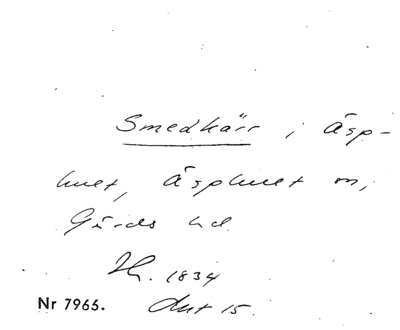 Smedkärr i Äsp-
huet, Äsphuet m,
Gärds hd.
1834
Nr 7965. Aut 15.